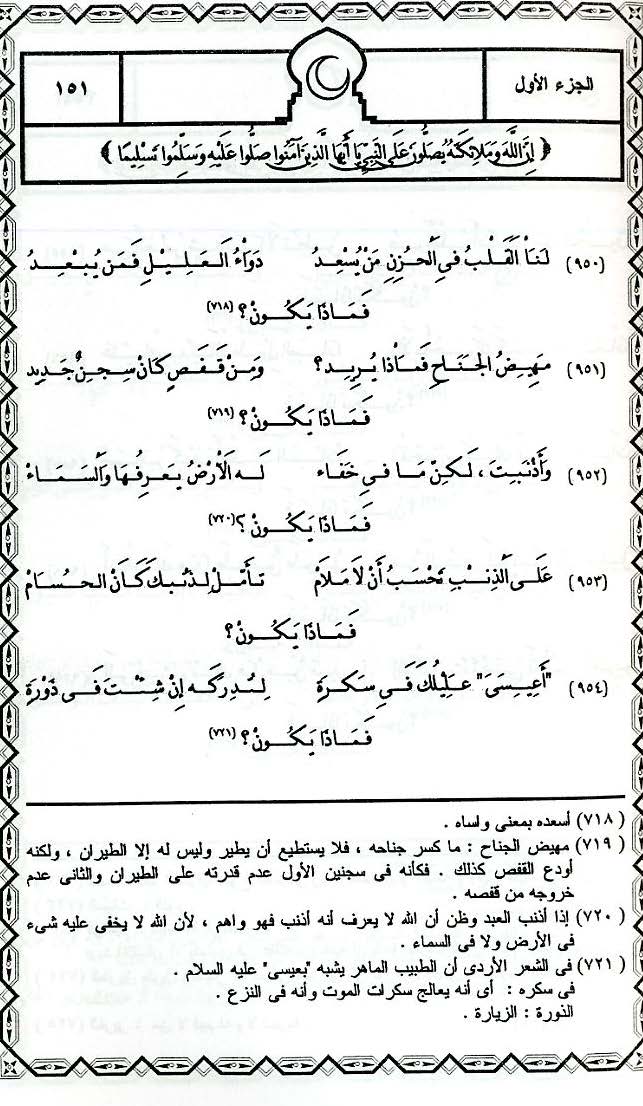 الجزء الأول
١٥١
﴿ إِنَّ اللَّهَ وَمَلَائِكَتَهُ يُصَلُّونَ عَلَى النَّبِيِّ يَا أَيُّهَا الَّذِينَ آمَنُوا صَلُّوا عَلَيْهِ وَسَلِّمُوا تَسْلِيمًا ﴾
(٩٥٠) لَنَا الْقَلْبُ فِى الْحُزْنِ مَنْ يُسْعِدُ دَوَاءُ الْعَلِيلِ فَمَن يُبْعِدُ
فَمَاذَا يَكُونْ؟ (٧١٨)
(٩٥١) مَهِيضُ الجَنَاحِ فَمَاذَا يُرِيد؟ وَمِنْ قَفَصٍ كَانَ سِجْنٌ جَدِيد
فَمَاذَا يَكُونْ؟ (٧١٩)
(٩٥٢) وَأَذْنَبْتَ ، لَكِنَّ مَا فى خَفَاء لَه الأَرْضُ يَعْرِفُهَا وَالسَّمَاءْ
فَمَاذَا يَكُونْ ؟(٧٢٠)
(٩٥٣) عَلَى الذَّنْبِ تَحْسَبُ أَنْ لَا مَلَامْ تَأَمَّلْ لِذَنْبِكَ كَانَ الحُسَامْ
فَمَاذَا يَكُونْ؟
(٩٥٤) "أَعِيسَى" عَلِيلُكَ فَى سَكْرَةِ لِتُدْرِكَه إِنْ شِئْتَ فَى ذَوْرَةِ
فَمَاذَا يَكُونْ؟ (٧٢١)
(٧١٨) أسعده بمعنى واساه .
(٧١٩) مهيض الجناح : ما كسر جناحه ، فلا يستطيع أن يطير وليس له إلا الطيران ، ولكنه
أودع القفص كذلك . فكأنه فى سجنين الأول عدم قدرته على الطيران والثانى عدم
خروجه من قفصه .
(٧٢٠) إذا أذنب العبد وظن أن الله لا يعرف أنه أذنب فهو واهم ، لأن الله لا يخفى عليه شىء
فى الأرض ولا فى السماء .
(٧٢١) فى الشعر الأردى أن الطبيب الماهر يشبه "بعيسى" عليه السلام .
فى سكره : أى أنه يعالج سكرات الموت وأنه فى النزع .
الذورة : الزيارة .